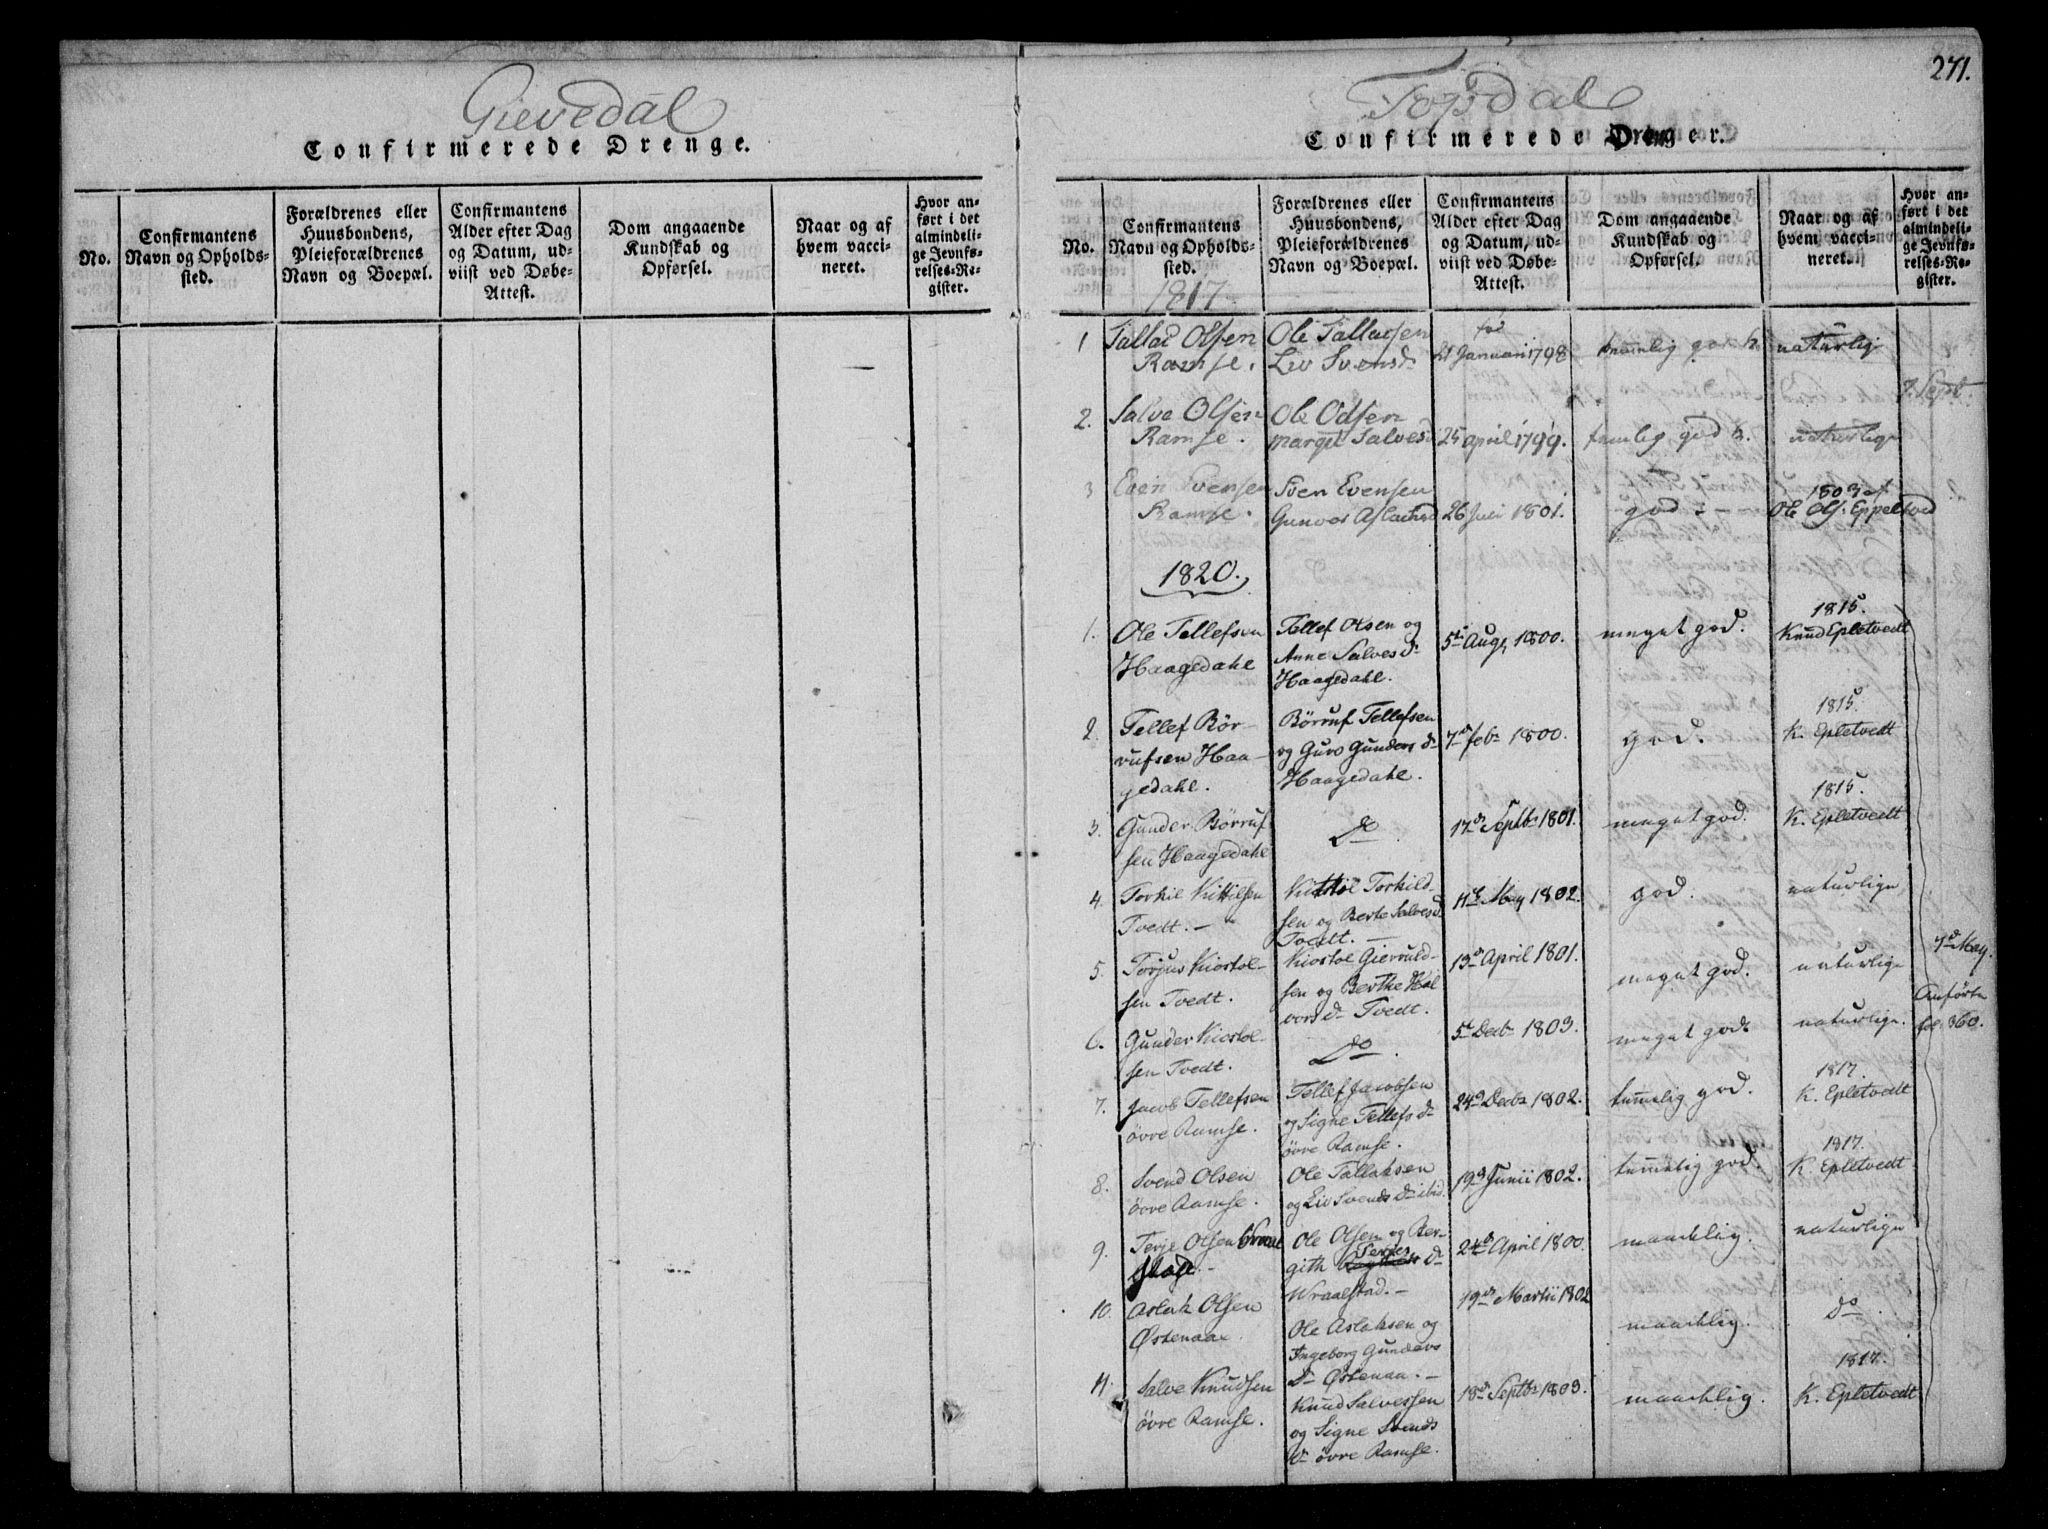 271.
Gievedal
Confirmerede Drenge.
No.
Confirmantens
Navn og Opholds-
sted.
Forældrenes eller
Huusbondens,
Pleieforældrenes
Navn og Boepæl.
Confirmantens
Alder efter Dag
og Datum, ud-
viist ved Døbe-
Attest.
Dom angaaende
Kundskab og
Opførsel.
Naar og af
hvem vacci-
neret.
Hvor an-
ført i det
almindeli-
ge Jevnfø-
relses-Re-
gister.
Topdal
Confirmerede Drenger.
No.
Confirmantens
Navn og Opholds-
sted.
Forældrenes eller
Huusbondens,
Pleieforældrenes
Navn og Boepæl.
Confirmantens
Alder efter Dag
og Datum, ud-
viist ved Døbe-
Attest.
Dom angaaende
Kundskab og
Opførsel.
Naar og af
hvem vacci-
neret.
Hvor an-
ført i det
almindeli-
ge Jevnfø-
relses-Re-
gister.
1817
1
Tallac Olsen
Ramse.
Ole Tallacsen
Liv Svensd
21 Januari 1798
temmlig god k.
naturlig
7. Sept.
2.
Salve Olsen
Ramse.
Ole Odsen
Marget Salvesd
25 april 1799.
temlig god k.
naturlige
3
Even Svensen
Ramse.
Sven Evensen
Gunvor Aslachsd
26 Juli 1801.
god - -
1803 af
Ole Ols. Eppeltved
1820.
1.
Ole Tellefsen
Haagedahl
Tellef Olsen og
Anne Salves d.
Haagedahl.
5t Aug, 1800.
meget god.
1815.
Knud Epletvedt
2.
Tellef Bör-
rufsen Haa-
gedahl.
Börruf Tellefsen
og Guro Gunders d
Haagedahl.
7d feb 1800.
god.
1815.
K. Epletvedt
3.
Gunder Börruf
sen Haagedahl
do
17d Septb 1801.
meget god.
1815.
K. Epletvedt
4.
Torkil Kittilsen
Tvedt. -
Torkild-
sen og Berte Salvesd
Tvedt. -
11d May 1802.
god.
naturlige
5.
Torjus Kiostol-
sen Tvedt.
Kiostol Gievuld-
sen og Berthe Hal
vors d Tvedt.
13d April 1801.
meget god.
naturlige
7d May.
Anförte
fol. 360.
6.
Gunder Kiostol-
sen Tvedt.
do.
5t Decb 1803.
meget god.
naturlige.
7.
Jacob Tellefsen
övre Ramse.
Tellef Jacobsen
og Signe Tellefs d
övre Ramse.
24d Decb 1802.
temmelig god.
1817.
K. Epletvedt
8.
Svend Olsen
övre Ramse.
Ole Tallaksen
og Liv Svends d ibid
19d Junii 1802.
temmelig god.
1817.
K. Epletvedt
9.
Terje Olsen
Ole Olsen og Ber-
gith d
Wraalstad. -
24d April 1800.
maadelig.
naturlige
10.
Aslak Olsen
Østenaae
Ole Aslaksen og
Ingeborg Gunders
d Østenaa. -
19d Martii 1802
maadelig.
do.
11.
Salve Knudsen
övre Ramse.
Knud Salvessen
og Signe Svends
d övre Ramse.
18d Septb 1803.
maadelig.
1817.
K. Epletvedt